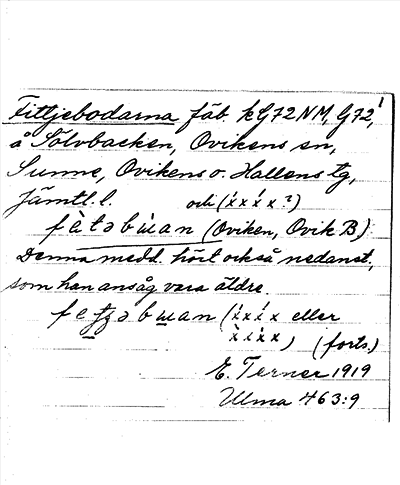 Fittjebodarna fäb. kG72NM, G72,1
å Sölvbacken, Ovikens sn,
Sunne, Ovikens o. Hallens tg,
Jämtl. l. och (x́ x x́ x ?)
fὲtəbẁan (Oviken, Ovik B)
Denna medd. hört också nedanst.,
som han ansåg vara äldre.
əbɯan (x́ x x́ x eller
x̀ x x́ x) (forts.)
E. Terner 1919
Ulma 463:9